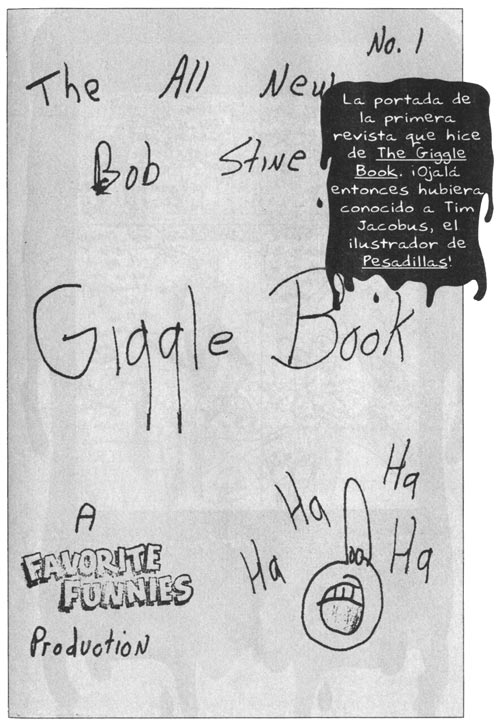 No. 1
The All New
Bob Stine
La portada de
la primera
revista que hice
de The Giggle
Book. ¡Ojalá
entonces hubiera
conocido a Tim
Jacobus, el
ilustrador de
Pesadillas!
Giggle Book
Ha
Ha
Ha
Ha
A
FAVORITE
FUNNIES
Production